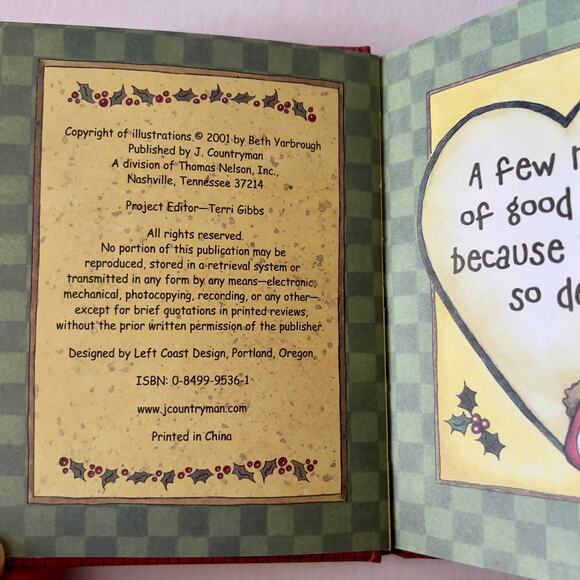 Copyright of illustrations © 2001 by Beth Yarbrough
Published by J. Countryman
A division of Thomas Nelson, Inc.,
Nashville, Tennessee 37214
Project Editor—Terri Gibbs
All rights reserved.
No portion of this publication may be
reproduced, stored in a retrieval system or
transmitted in any form by any means—electronic,
mechanical, photocopying, recording, or any other—
except for brief quotations in printed reviews,
without the prior written permission of the publisher.
Designed by Left Coast Design, Portland, Oregon
ISBN: 0-8499-9536-1
www.jcountryman.com
Printed in China
A few
of good
because
so